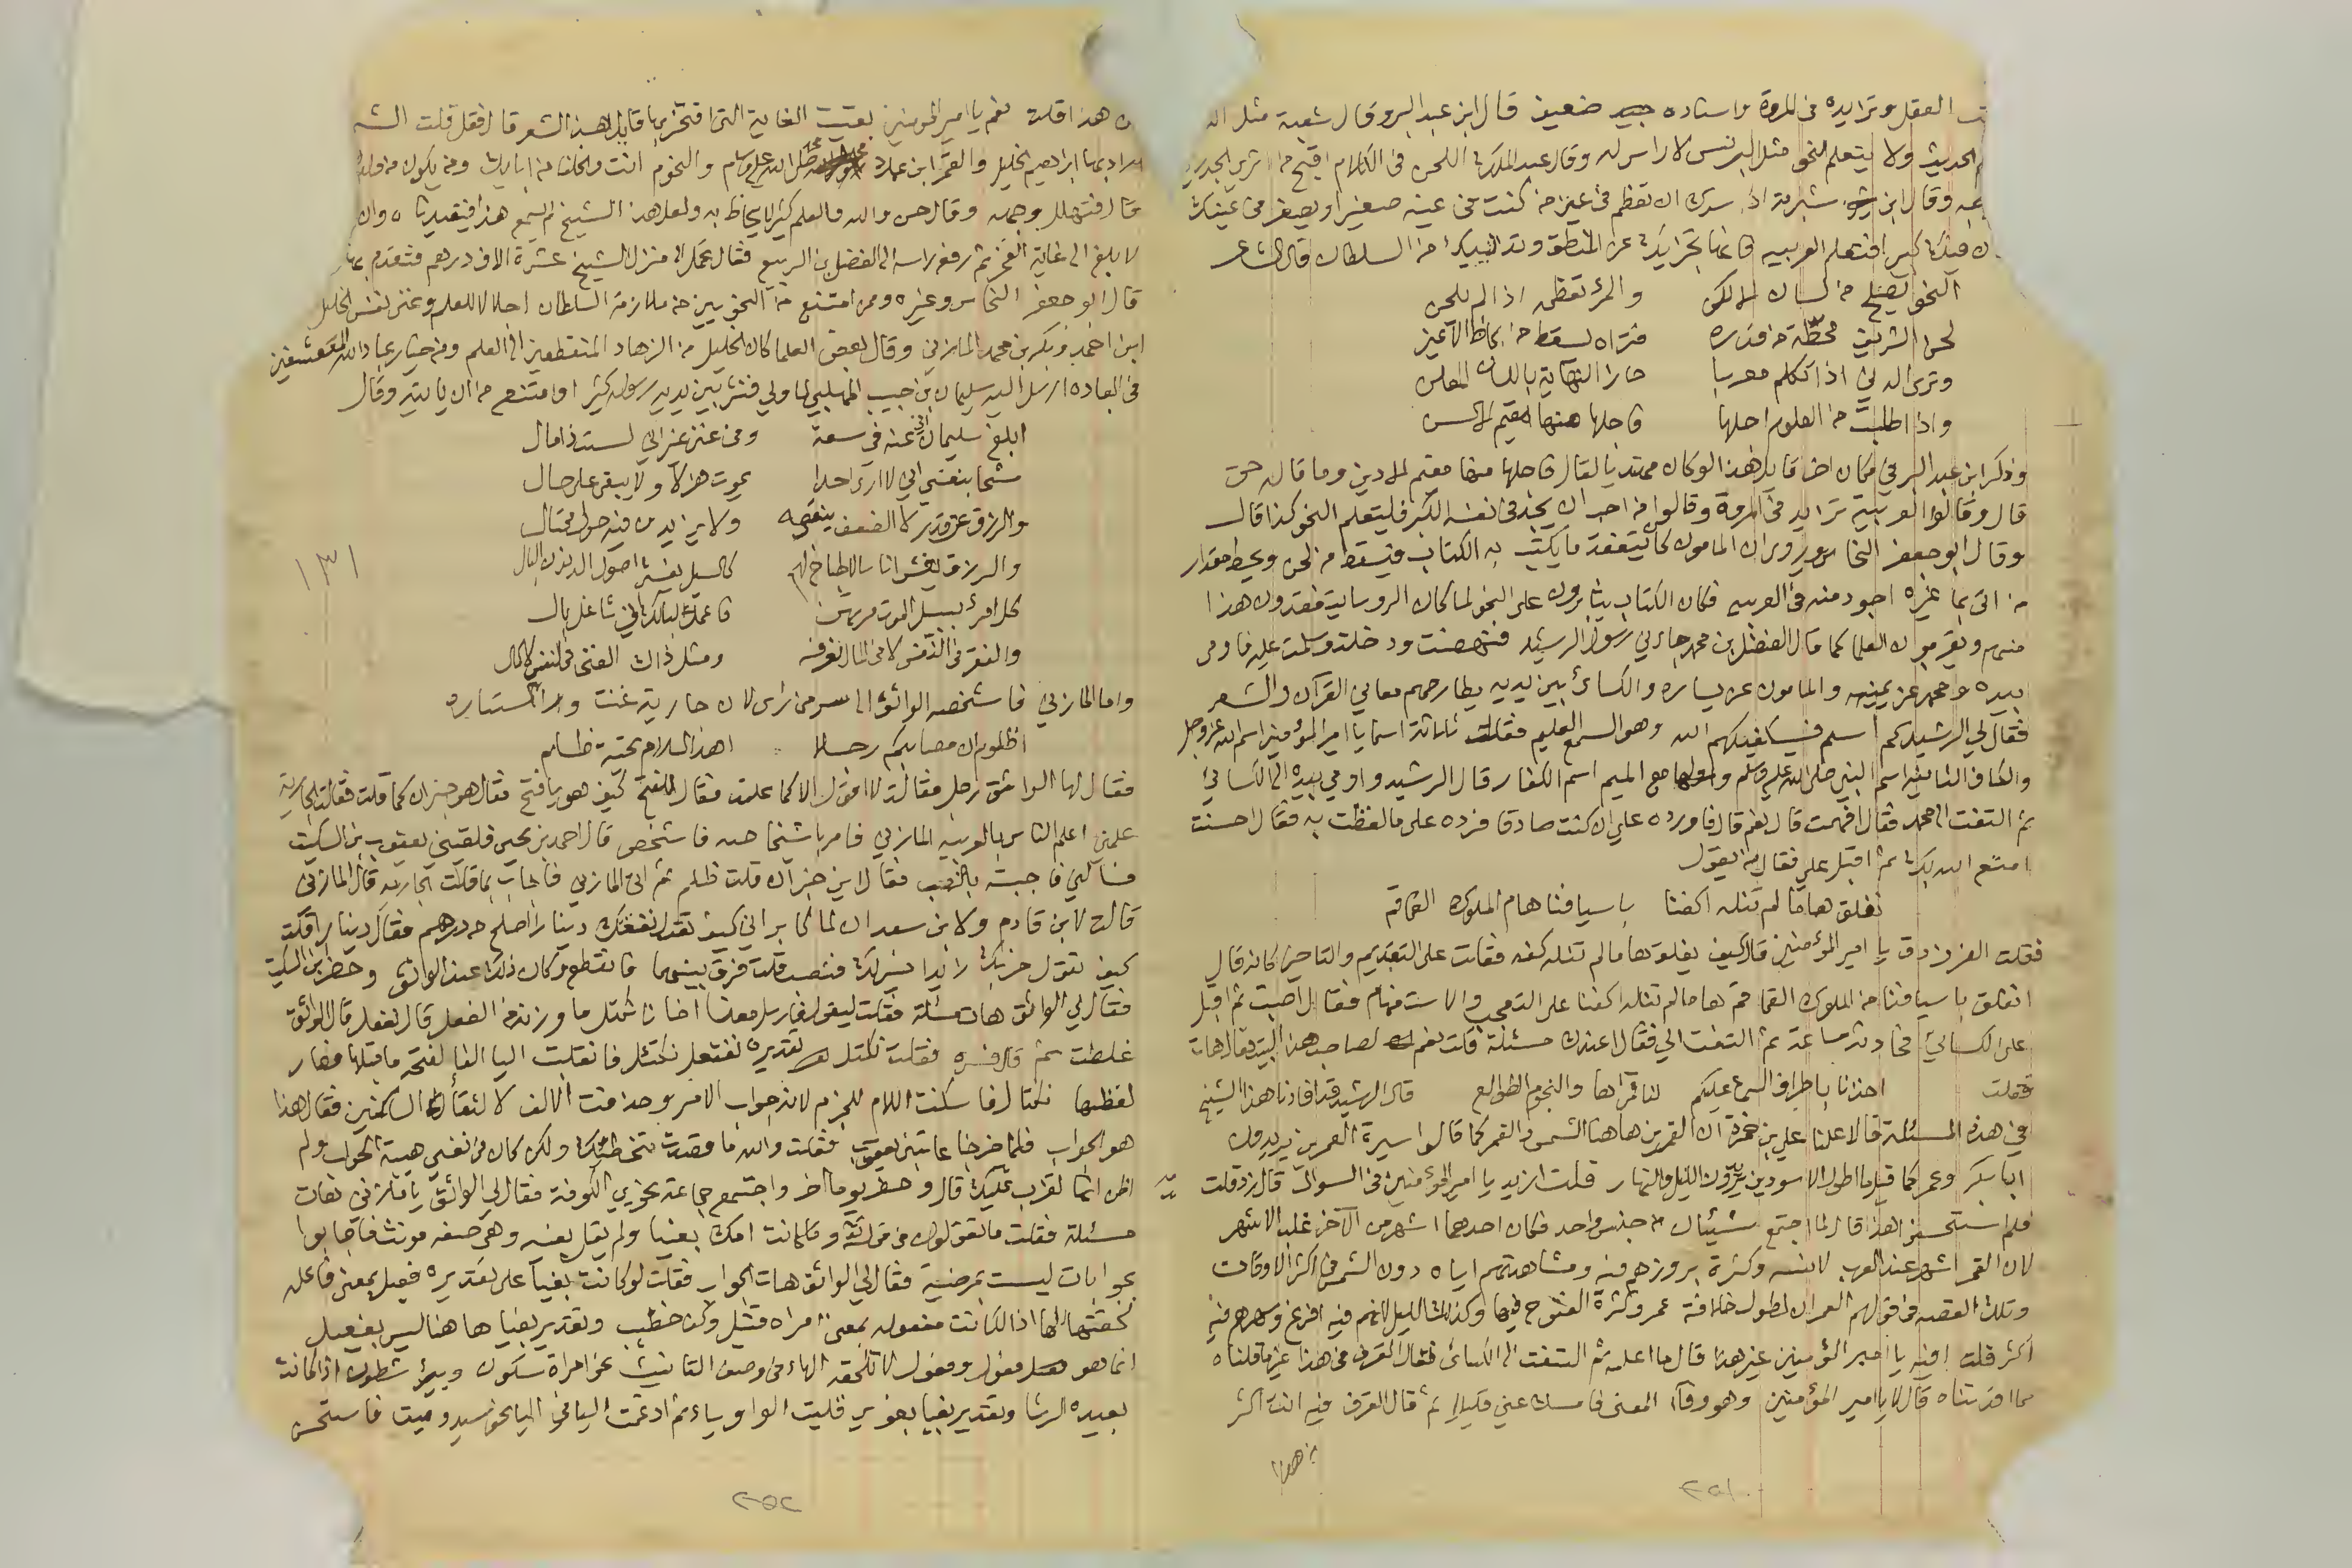 العقل وتزايده في المروة واسناده جيد ضعيف قال ابن عبد البر وقال شعبة مثل الذ
الحديث ولا يتعلم النحو مثل البرنس لا راس له وقال عبد الملك اللحن في الكلام اقبح من
وقال ابن شبرمة اذا سرك ان تعظم في عين من كنت في عينه صغيرا ويصغر في عينك
كبيرا فتعلم العربيه فانها تجزيك عن المنطق وتدنيك من السلطان قال الشاعر
النحو يصلح من لسان الالكن والمرؤ تعظمه اذا لم يلحن
لحن الشريف محطة من قدره فتراه يسقط من لحاظ الاعين
وترى الدني اذا تكلم معربا حاز النهاية باللسان المعلن
واذا طلبت من العلوم اجلها فاجلها منها مقيم الالسن
وذكر ابن عبد البر في مكان اخر قايل هذا لو كان مهتديا لقال فاجلها منها مقيم الادين وما قال حق
قال وقالوا العربية تزايد في المروة وقالوا من احب ان يجد في نفسه الكبر فليتعلم النحو كذا قال
وقال ابو جعفر النحاس وروى ان المامون كان يتفقد ما يكتب به الكتاب فيسقط من لحن ويحط مقدار
من اتى بما غيره اجود منه في العربيه فكان الكتاب يثابرون على النحو لما كان الروسا يتفقدون هذا
منهم ويقربون العلما كما قال المفضل بن محمد جاءني رسول الرشيد فنهضت ودخلت وسلمت عليه فاومى
بيده ومحمد عن يمينه والمامون عن يساره والكسائي بين يديه يطارحهم معاني القرآن والشعر
فقال لي الرشيد كم اسم فسيكفيكهم الله وهو السميع العليم فقلت ثلاثة اسما يا امير المؤمنين اسم الله عز وجل
والكاف الثانية اسم النبي صلى الله عليه وسلم والها مع الميم اسم الكفار قال الرشيد واومي بيده الى الكسائي
ثم التفت الى محمد فقال افهمت قال نعم قال فاورده علي ان كنت صادقا فرده على ما لفظت به فقال احسنت
امتع الله بك ثم اقبل علي فقال من يقول
نفلق هاما لم تنله اكفنا باسيافنا هام الملوك القماقم
فقلت الفرزدق يا امير المؤمنين قال كيف يفلق هاما لم تنله كفه فقلت على التقديم والتاخير كانه قال
انفلق باسيافنا من الملوك القماقم هاما لم تنله اكفنا على التعجب والاستفهام فقال اصبت ثم اقبل
على الكسائي فحادثه ساعة ثم التفت الي فقال اعندك مسئلة قلت نعم لصاحب هذا البيت فقال هات
فقلت اخذنا باطراف السماء عليكم لنا قمراها والنجوم الطوالع قال الرشيد قد افادنا هذا الشيخ
في هذه المسئلة قال اعلنا علي بن حمزة ان القمرين هاهنا الشمس والقمر كما قالوا سيرة العمرين يريدون
ابا بكر وعمر كما قيل ما اطول الاسودين يريدون الليل والنهار قلت ازيد يا امير المؤمنين في السوال قال زد قلت
فلم استحسن هذا قال لما اجتمع شيئان من جنس واحد فكان احدهما اشهر من الاخر غلب الاشهر
لان القمر اشهر عند العرب لانسه وكثرة بروزهم فيه ومشاهدتهم اياه دون الشمس في اكثر الاوقات
وتلك القصه في قولهم العمران لطول خلافة عمر وكثرة الفتوح فيها وكذلك الليل لانهم فيه افرغ وسمرهم فيه
اكثر قلت افيه يا امير المؤمنين غير هذا قال ما اعلمه ثم التفت الى الكسائي فقال اتعرف في هذا غير ما قلناه
مما افدتناه قال لا يا امير المؤمنين وهو وفاء المعنى فامسك عني قليلا ثم قال اتعرف فيه انت اكثر
من هذا
٢٥١
هذا قلت نعم يا امير المومنين بقيت الغاية التي افتخر بها قايل هذا الشعر قال فقل قلت الشمس
اراد بها ابراهيم الخليل والقمر ابن عمك محمد صلى الله عليه وسلم والنجوم انت والخلفا من ابايك ومن يكون من ولدك
قال فتهلل وجهه وقال حسن والله والعلم كثير لا يحاط به ولعل هذا الشيخ لم يسمع هذا فيفيدناه وان
لا بلغ الى غاية الفخر ثم رفع راسه الى الفضل بن الربيع فقال تحمل الى منزل الشيخ عشرة الاف درهم فتقدم بها
قال ابو جعفر النحاس وغيره وممن امتنع من النحويين من ملازمة السلطان اجلالا للعلم وعزة نفس الخليل
ابن احمد وبكر بن محمد المازني وقال بعض العلما كان الخليل من الزهاد المنقطعين الى العلم ومن خيار عباد الله المتقشفين
في العباده ارسل اليه سليمان بن حبيب المهلبي لما ولي فنثر بين يديه رسوله كثيرا وامتنع من ان ياتيه وقال
ابلغ سليمان اني عنه في سعة ومن عنز غير اني لست ذا مال
سخا بنفسي اني لا ارى احدا يموت هزلا ولا يبقى على حال
والرزق عن قدر لا الضعف ينقصه ولا يزيدك فيه حول محتال
والرزق يغشى اناسا لا طباخ لهم كالسيل يغشى اصول الدندن البالي
كل امرئ بسبيل الموت مرتهن فاعمل لبالك اني شاغل بال
والفقر في النفس لا في المال نعرفه ومثل ذاك الغنى في النفس لا المال
١٣١
واما المازني فاشخصه الواثق الى سر من راى لان جارية غنت وراء الستاره
اظلوم ان مصابكم رجلا اهدى السلام تحية ظلم
فقال لها الواثق رجل فقالت لا اقول الا كما علمت فقال للفتح كيف هو يا فتح فقال هو خبر ان كما قلت فقالت الجارية
علمني اعلم الناس بالعربيه المازني فامر باشخاصه فاشخص قال احمد بن يحيى فلقيني يعقوب بن السكيت
فسالني فاجبته بالنصب فقال لاين خبر ان قلت ظلم ثم اتى المازني فاجاب بما قلت الجاريه قال المازني
قالت لابن قادم ولابن سعدان لما كابراني كيف تقول نفقتك دينارا اصلح من درهم فقال دينار قلت
كيف تقول ضربك زيدا خير لك فنصب قلت فرق بينهما فانقطع وكان ذلك عند الواثق وحضر ابن السكيت
فقال لي الواثق هات مسئلة فقلت ليعقوب فارسل معنا اخانا نكتل ما وزنه من الفعل قال نفعل قال الواثق
غلطت ثم قال فسره فقلت نكتل تقديره نفتعل نكتيل فانقلبت اليا الفا لفتحة ما قبلها فصار
لفظها نكتال فاسكنت اللام للجزم لانه جواب الامر وحذفت الالف لالتقاء الساكنين فقال هذا
هو الجواب فلما خرجنا عاتبني يعقوب فقلت والله ما قصدت تخطئتك ولكن كان في نفسي هيبة الجواب ولم
اظن انها تعزب عليك قال وحضر يوما اخر واجتمع جماعة نحويي الكوفة فقال لي الواثق يا مازني هات
مسئلة فقلت ما تقولون في قوله تعالى وما كانت امك بغيا ولم يقل بغيه وهي صفه مونث فاجابوا
بجوابات ليست مرضية فقال لي الواثق هات الجواب فقلت لو كانت بغيا على تقديره فعيل بمعنى فاعل
لحقتها الها اذا كانت مفعوله بمعنى امراه قتيل وكف خضيب وتقدير بغيا هاهنا ليس بفعيل
انما هو فعول وفعول لا تلحقه الهاء في وصف التانيث نحو امراة سكون وبئر شطون اذا كانت
بعيده الرشا وتقدير بغيا بغوي قلبت الواو ياء ثم ادغمت اليا في اليا نحو سيد وميت فاستحسن
٢٥٢